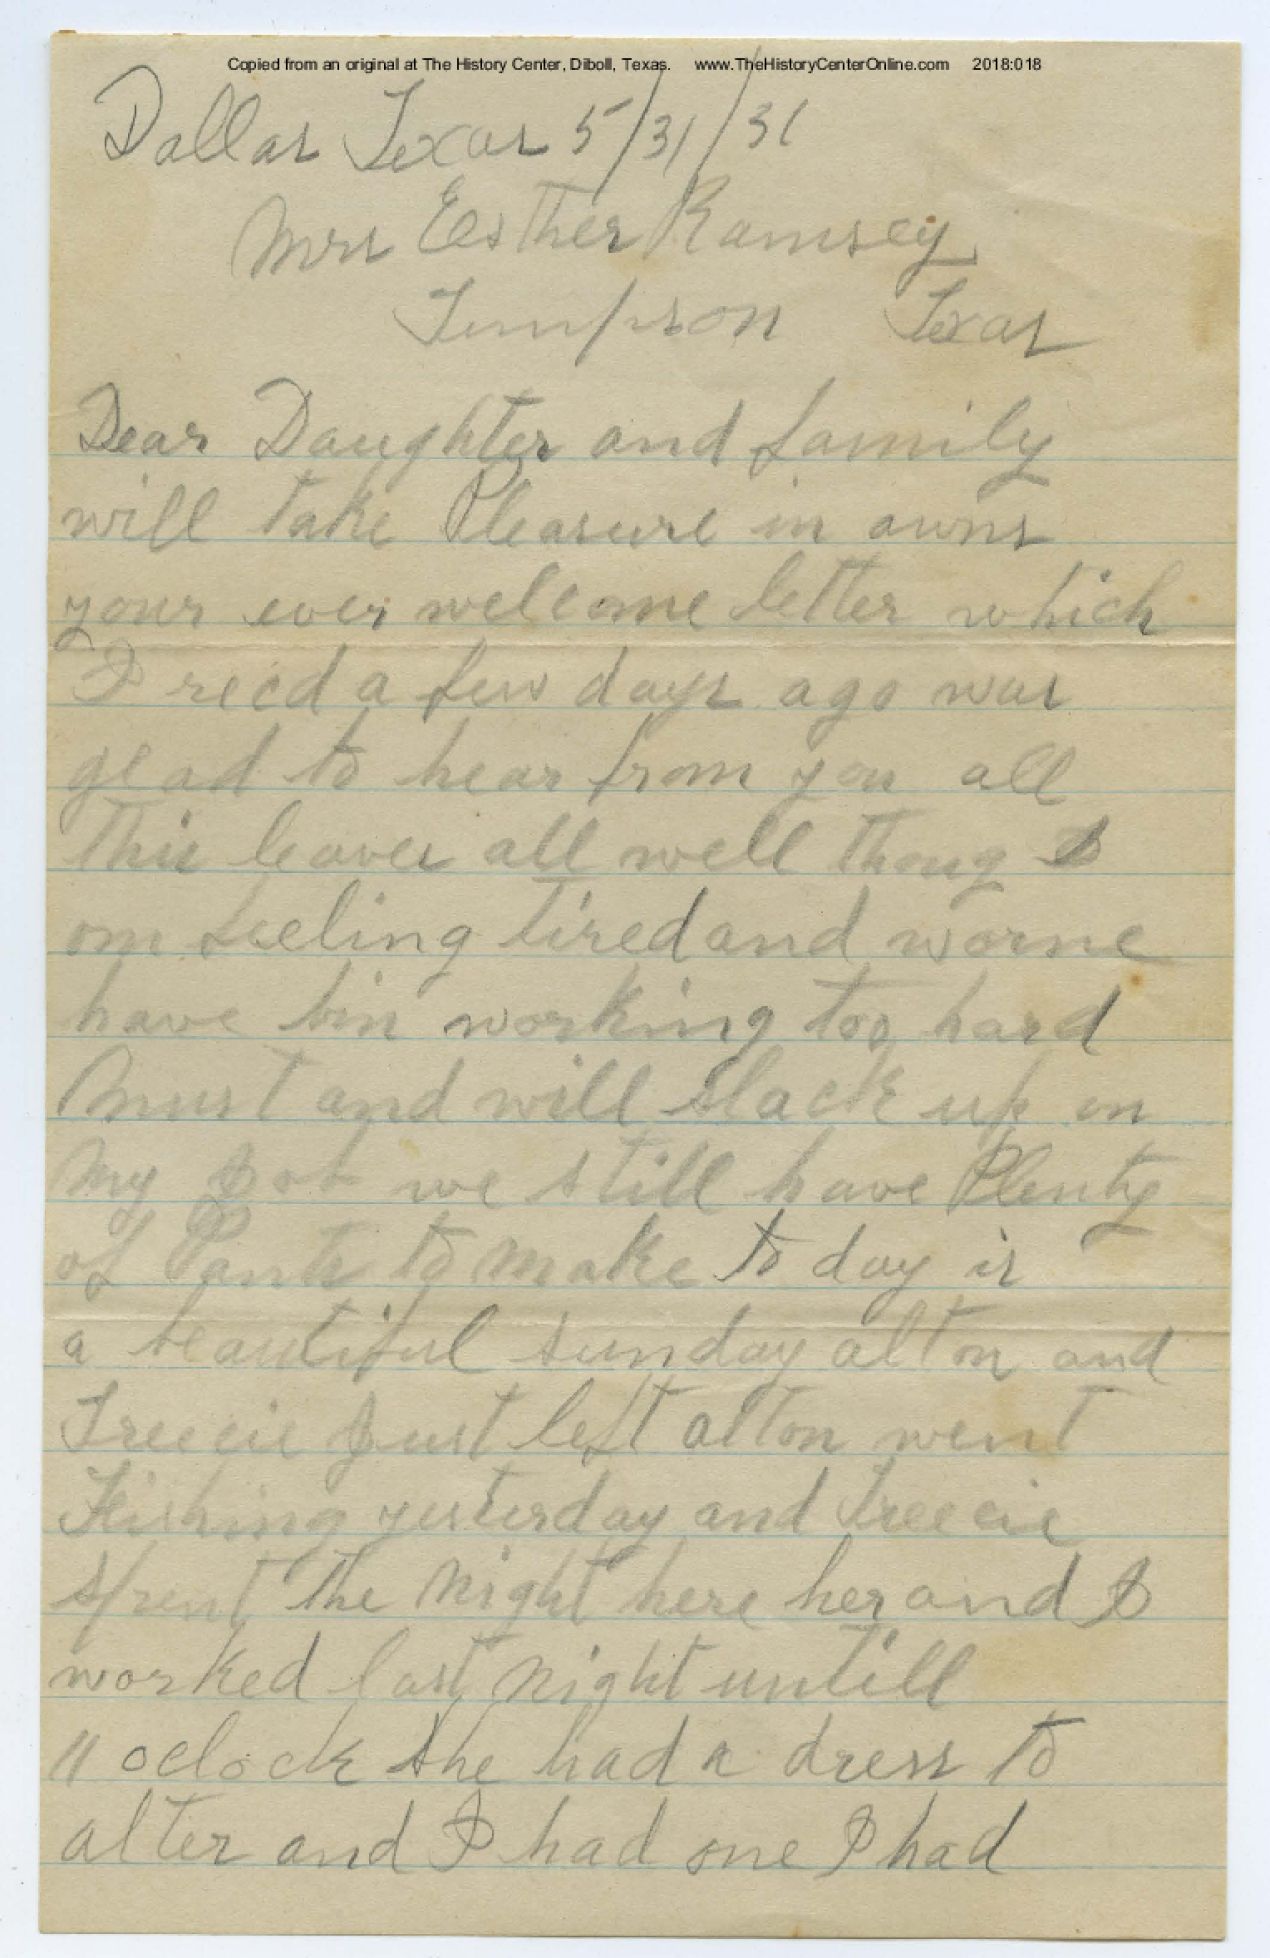 Copied from an original at The History Center, Diboll, Texas. www.TheHistoryCenterOnline.com 2018:018
Dallas Texas 5/31/31
Mrs Eesther Ramsey
Timpson Texas
Dear Daughter and family
will take Pleasure in awns
your ever welcome letter which
I recd a few days ago was
glad to hear from you all
this leaves all well thoug I
am feeling tired and worne
have bin working too hard
Must and will slack up on
My Job we still have Plenty
of Pants to make to day is
a beautiful sunday alton and
Treecie Just left alton went
Fishing yesterday and Treecie
spent the Night here her and I
worked last Night untill
11 oclock she had a dress to
alter and I had one I had